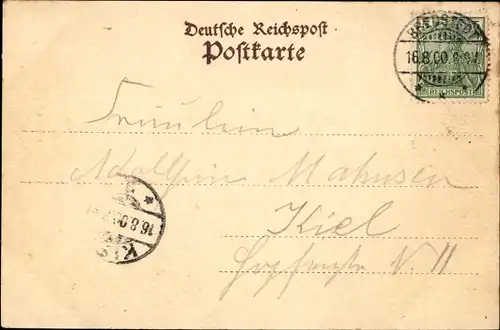 Deutsche Reichspost
Postkarte
BREDSTEDT
16.8.00.8-9V
REICHSPOST
Fräulein
Adolfine Mahnsen
Kiel
N. 11
16.8.00
K